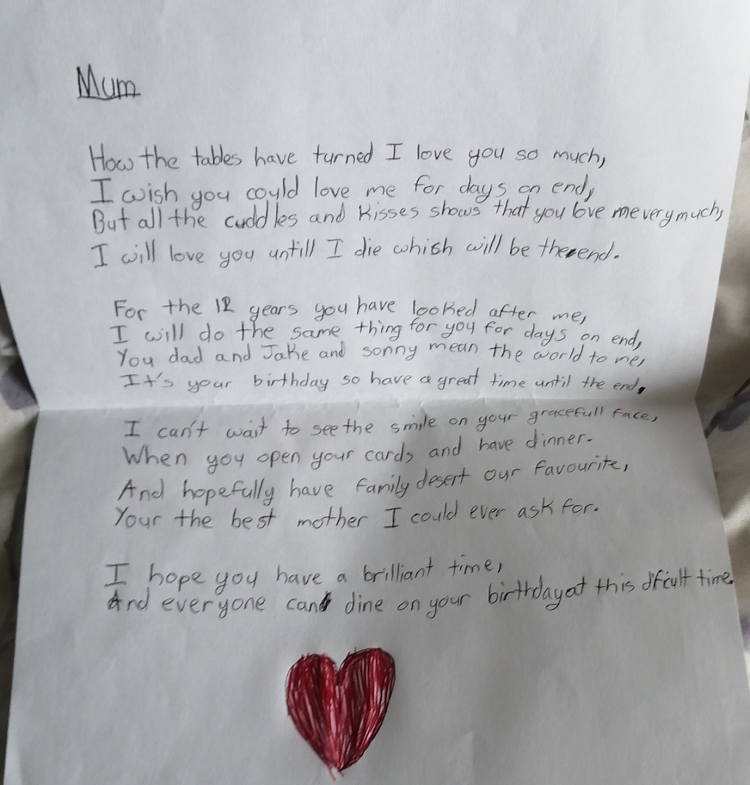 Mum
How the tables have turned I love you so much,
I wish you could love me for days on end,
But all the cuddles and kisses shows that you love me very much,
I will love you untill I die which will be the end.
For the 12 years you have looked after me,
I will do the same thing for you for days on end,
You dad and Jake and sonny mean the world to me,
It's your birthday so have a great time until the end,
I can't wait to see the smile on your gracefull face,
When you open your cards and have dinner.
And hopefully have family desert our favourite,
Your the best mother I could ever ask for.
I hope you have a brilliant time,
And everyone can dine on your birthday at this dficult time.